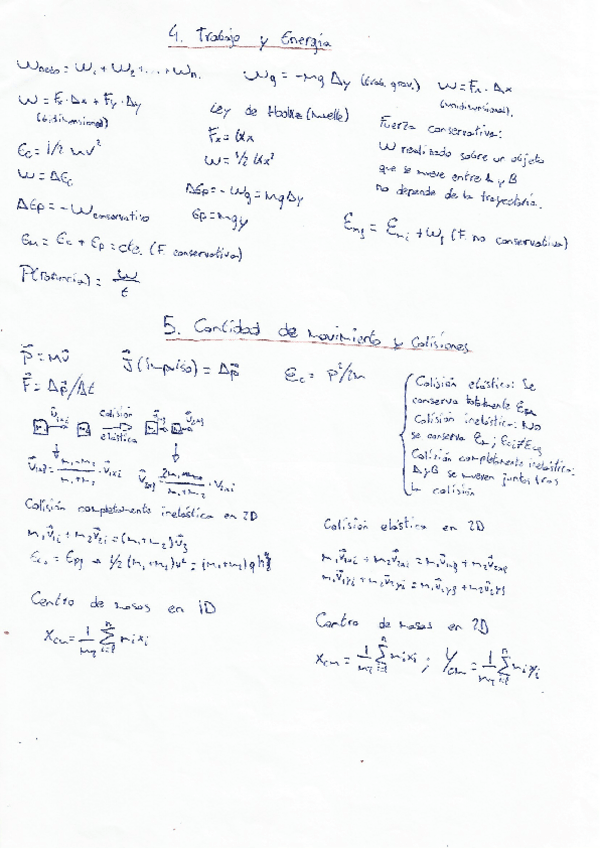 4. Trabajo y Energía
Wneto = W₁ + W₂ + ... + Wn.
Wg = -mg Δy (trab. grav.)
W = Fx · Δx
(unidimensional).
W = Fx · Δx + Fy · Δy
(bidimensional)
Ley de Hooke (muelle)
Fx = kx
W = 1/2 kx²
Fuerza conservativa:
W realizado sobre un objeto
que se mueve entre A y B
no depende de la trayectoria.
Ec = 1/2 mv²
W = ΔEc
ΔEp = -Wconservativo
ΔEp = -Wg = mgΔy
Ep = mgy
Em = Ec + Ep = cte. (F. conservativa)
Emf = Emi + Wf (F. no conservativa)
P(Potencia) = W/t
5. Cantidad de movimiento y Colisiones
p⃗ = mv⃗
J⃗ (impulso) = Δp⃗
Ec = p²/2m
F⃗ = Δp⃗/Δt
Colisión elástica: Se
conserva totalmente
Colisión inelástica: No
se conserva ; Eci≠Ecf
Colisión completamente inelástica:
A y B se mueven juntos tras
la colisión
v⃗1i
colisión
elástica
v⃗1f
v⃗2f
v⃗1f = m₁-m₂/m₁+m₂ · v1xi
v⃗2xf = 2m₁/m₁+m₂ · v1xi
Colisión completamente inelástica en 2D
m₁v⃗1i + m₂v⃗2i = (m₁+m₂)v⃗f
Ec₀ = Epf → 1/2 (m₁+m₂)v² = (m₁+m₂)gh
Colisión elástica en 2D
m₁v⃗1xi + m₂v⃗2xi = m₁v⃗1xf + m₂v⃗2xf
m₁v⃗1yi + m₂v⃗2yi = m₁v⃗1yf + m₂v⃗2yf
Centro de masas en 1D
Xcm = 1/mT Σ(i=1, n) mixi
Centro de masas en 2D
Xcm = 1/mT Σ(i=1, n) mixi ; Ycm = 1/mT Σ(i=1, n) miyi